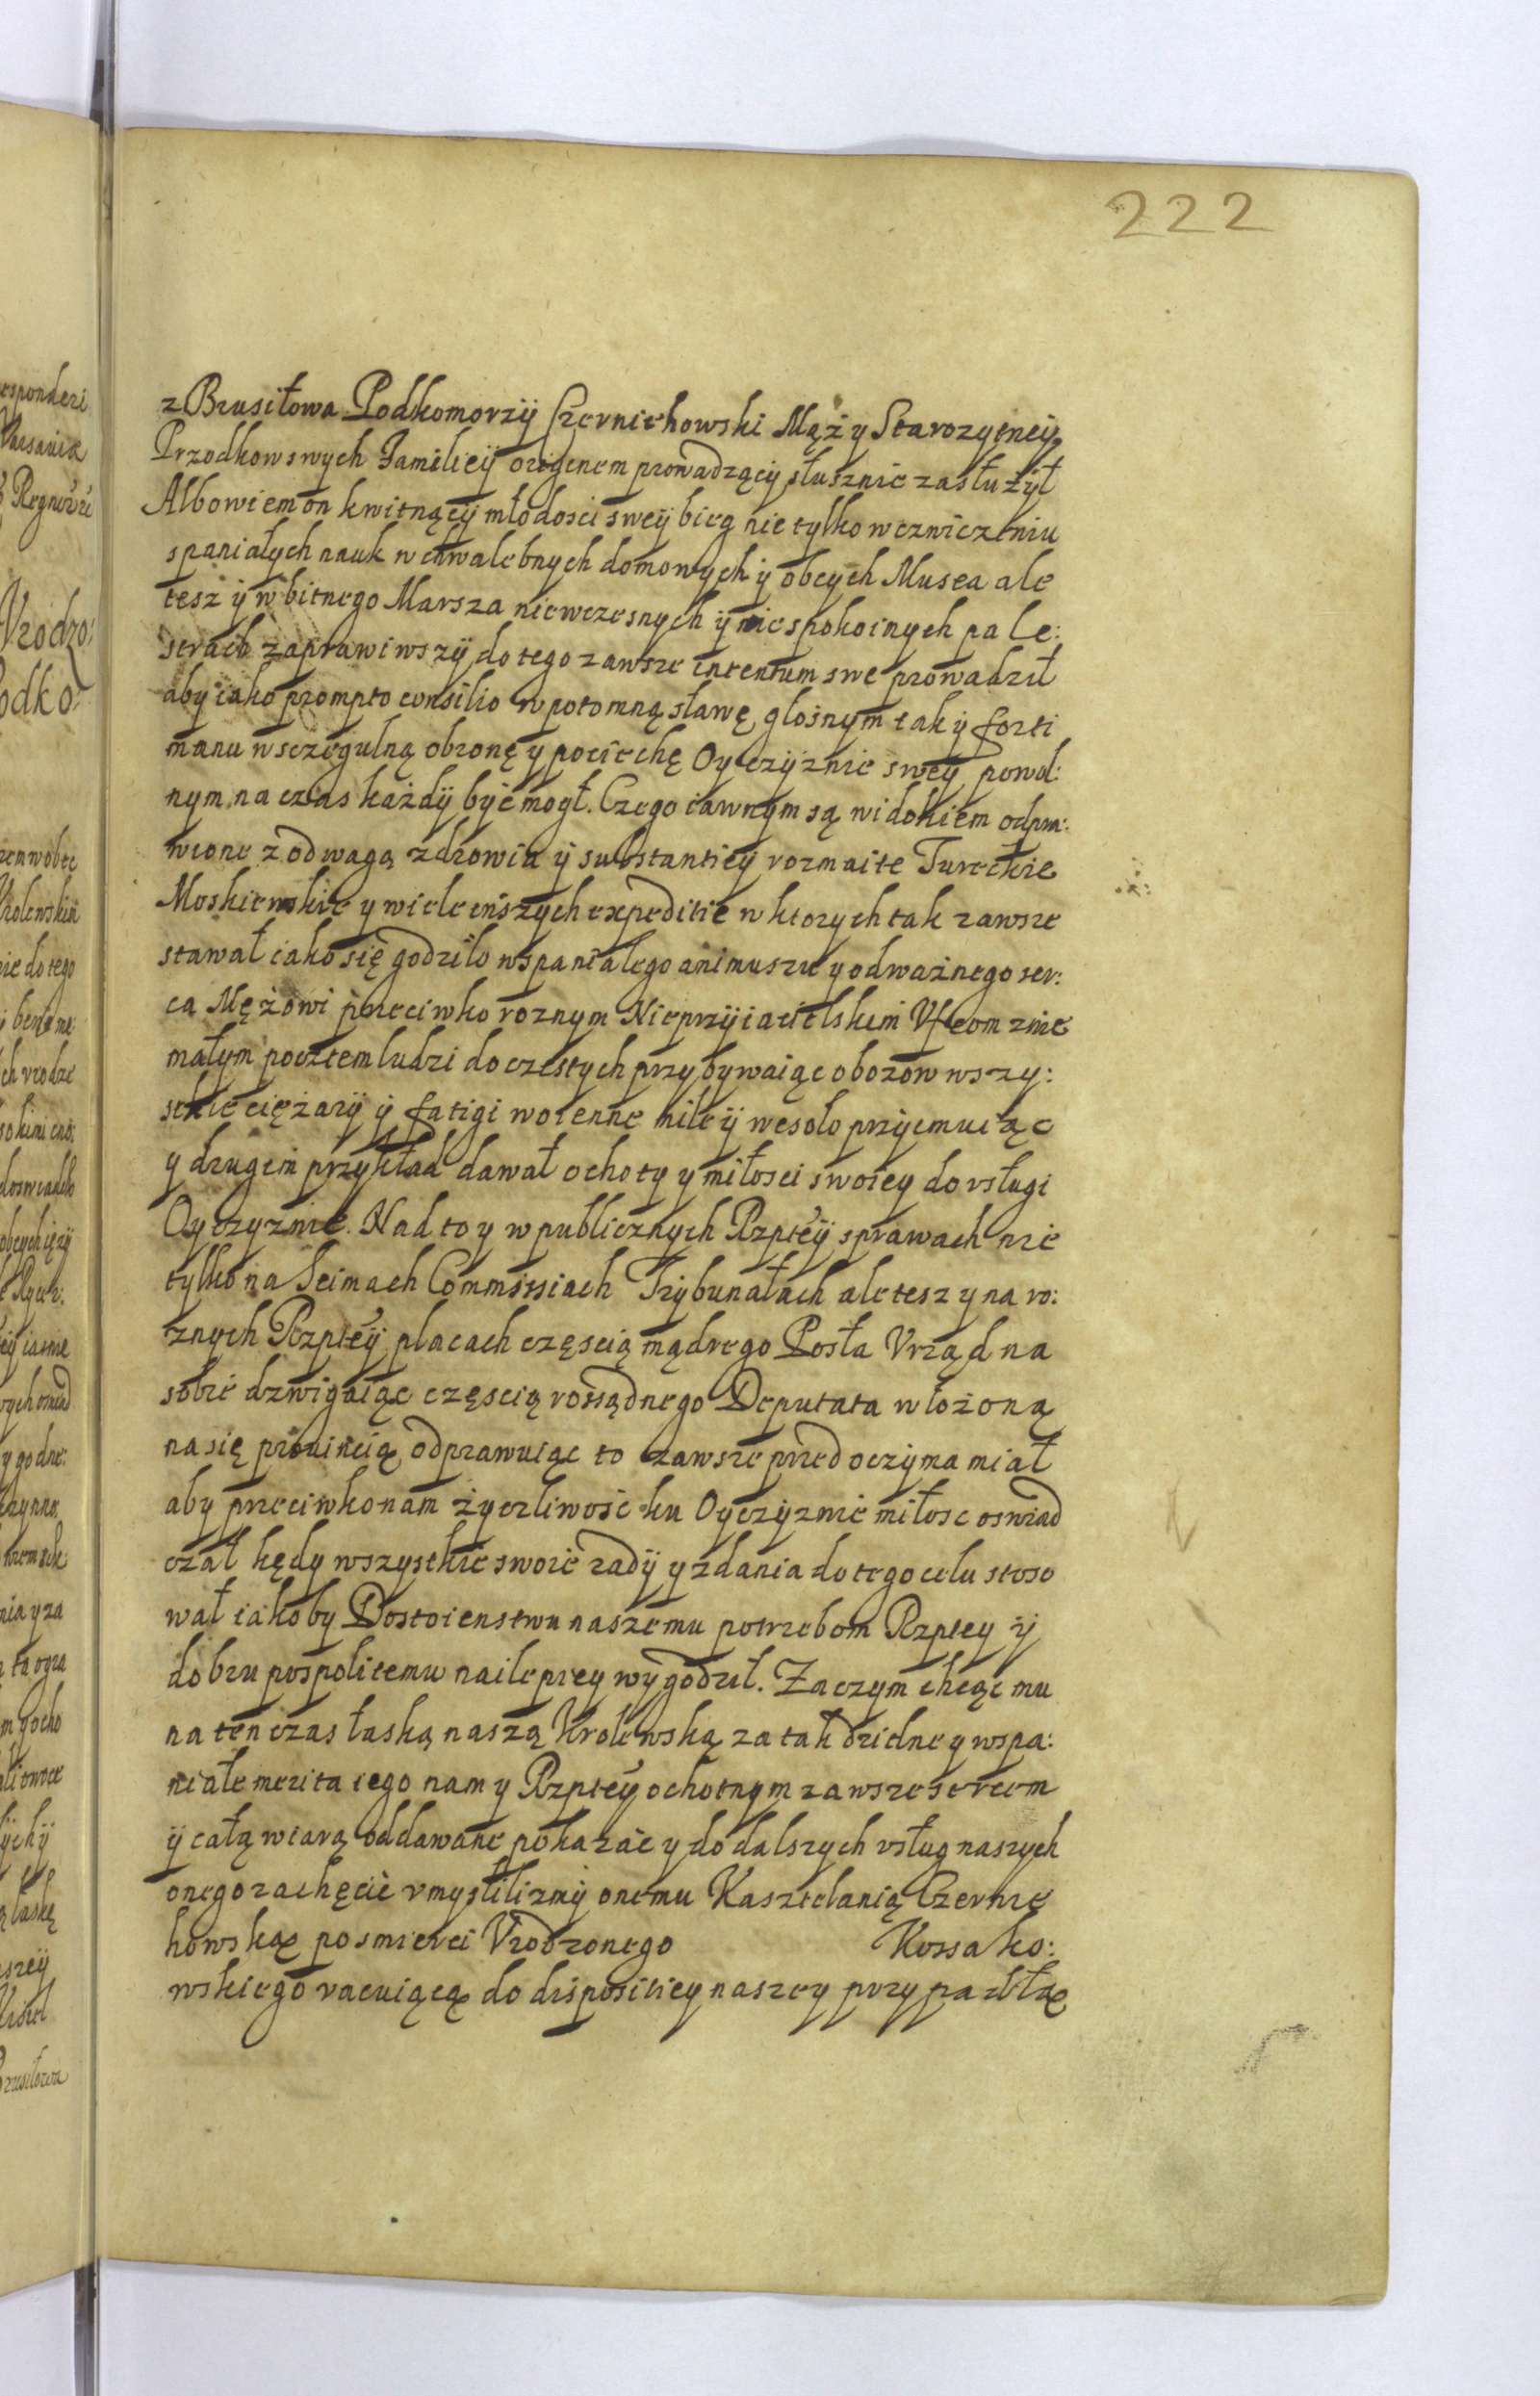 222
z Brusiłowa Podkomorzÿ Czerniehowski Mąż y Starozytneÿ
Przodkow swych Familieÿ originem prowadzącÿ słusznie zasłużÿł
Albowiem on kwitnącÿ młodosci sweÿ bieg nie tylko w czwiczeniu
spaniałych nauk w chwalebnych domowych ÿ obcych Musea ale
tesz ÿ w bitnego Marsza niewczesnych ÿ niespokoinych pale:
strach zaprawiwszÿ do tego zawsze intentum swe prowadził
aby iako prompto consilio w potomną sławę głośnym tak ÿ forti
manu w sczegulną obronę y pociechę Oyczÿznie sweÿ powol:
nym na czas każdÿ być mogł. Czego iawnym są widokiem odpra:
wione z odwagą zdrowia ÿ substantieÿ rozmaite Tureckie
Moskiewskie y wiele inszych expeditie w ktorych tak zawsze
stawał iako się godziło wspaniałego animuszu y odważnego ser:
ca Mężowi przeciwko roznym Nieprzÿiacielskim Vfcom z nie
małym pocztem ludzi do czestych przybywaiąc obozow wszy:
stkie ciężarÿ ÿ fatigi woienne mile ÿ wesoło przÿimuiąc
y drugim przykład dawał ochoty y miłosci swoiey do vsługi
Oyczyznie. Nad to y w publicznych Rzpteÿ sprawach nie
tylko na Seimach Commissiach Trÿbunałach ale tesz y na ro:
znych Rzpteÿ placach częscią mądrego Posła Vrząd na
sobie dzwigaiąc częscią rossądnego Deputata włożoną
na się prouincią odprawuiąc to zawsze przed oczÿma miał
aby przeciwko nam życzliwość ku Oyczÿznie miłosc oswiad
czał kędy wszystkie swoie radÿ y zdania do tego celu stoso
wał iakoby Dostoienstwu naszemu potrzebom Rzptey ÿ
dobru pospolitemu nailepiey wygodził. Zaczym chcąc mu
na ten czas łaską naszą Krolewską za tak dzielne y wspa:
niałe merita iego nam y Rzpteÿ ochotnym zawsze sercem
ÿ całą wiarą oddawane pokazać y do dalszych vsług naszych
onego zachęcić vmyslilizmÿ onemu Kasztelanią Czernie
howską po smierci Vrodzonego Kossako:
wskiego vacuiącą do dispositiey naszey przypadłą